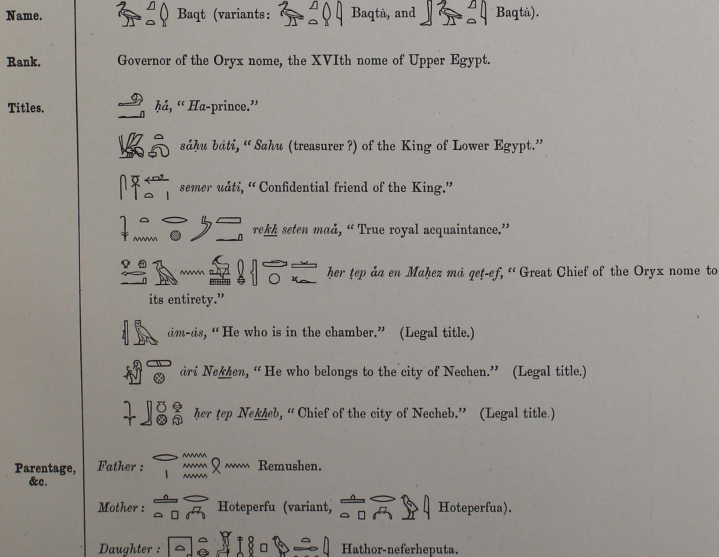 Name. Baqt (variants: Baqtȧ, and Baqtȧ).
Rank. Governor of the Oryx nome, the XVIth nome of Upper Egypt.
Titles. ḥá, “Ha-prince.”
sáḥu báti, “Sahu (treasurer ?) of the King of Lower Egypt.”
semer uáti, “Confidential friend of the King.”
rekh seten maá, “True royal acquaintance.”
ḥer ṭep áa en Maḥez má qeṭ-ef, “Great Chief of the Oryx nome to
its entirety.”
ám-ás, “He who is in the chamber.” (Legal title.)
ári Nekhen, “He who belongs to the city of Nechen.” (Legal title.)
ḥer ṭep Nekheb, “Chief of the city of Necheb.” (Legal title.)
Parentage, Father: Remushen.
&c.
Mother: Hoteperfu (variant, Hoteperfua).
Daughter: Hathor-neferheputa.